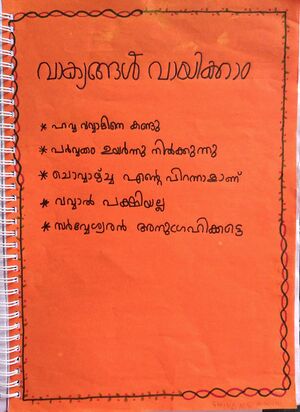 വാക്യങ്ങൾ വായിക്കാം
* പവ്വ വവ്വാലിനെ കണ്ടു
* പർവ്വതം ഉയർന്നു നിൽക്കുന്നു
* ചൊവ്വാഴ്ച്ച എന്റെ പിറന്നാളാണ്
* വവ്വാൽ പക്ഷിയല്ല
* സർവ്വേശ്വരൻ അനുഗ്രഹിക്കട്ടെ